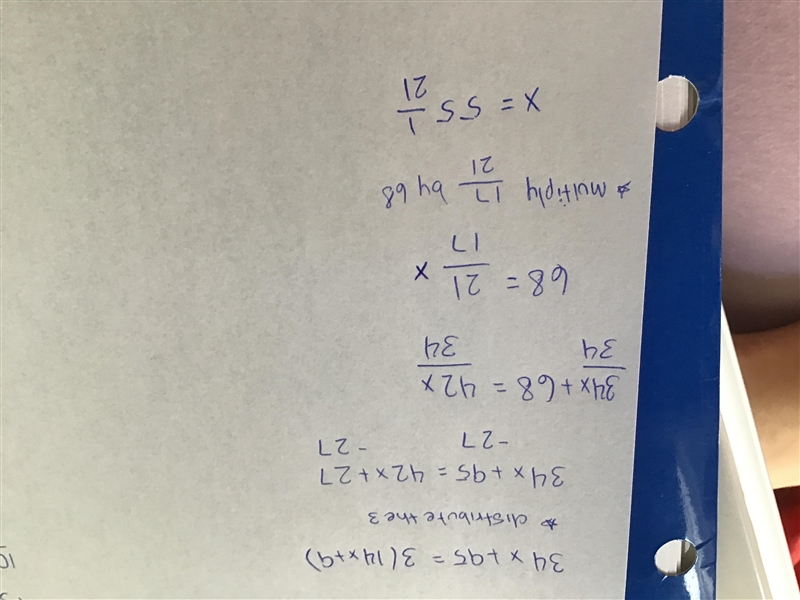 34x+95 = 3(14x+9)
* distribute the 3
34x+95 = 42x+27
-27 -27
34x+68 = 42x
34 34
68 = 21/17 x
* multiply 17/21 by 68
x = 55 1/21